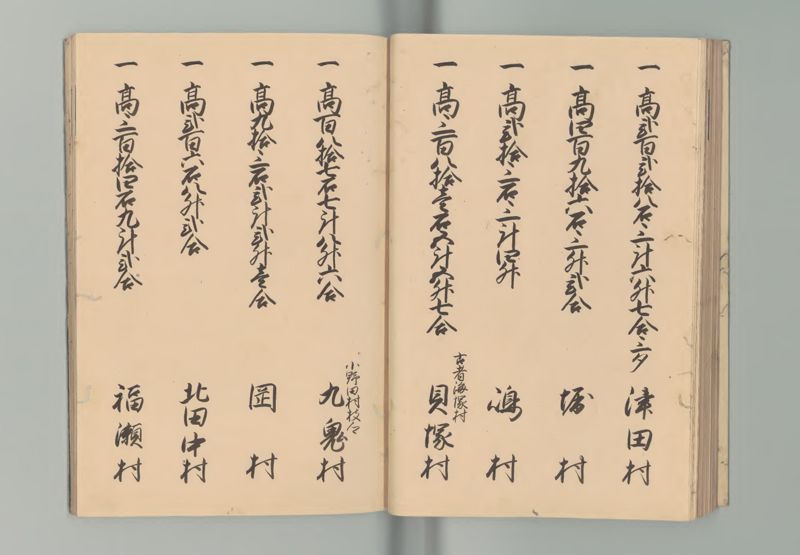 一 高弐百弐拾八石三斗六升七合三夕 津田村
一 高四百九拾六石三升弐合 堀村
一 高弐拾三石三斗四升 嶋村
古者海塚村
一 高三百八拾壱石五斗五升七合 貝塚村
小野田村枝
一 高百八拾七石七斗八升六合 九鬼村
一 高九拾三石弐斗弐升壱合 岡村
一 高弐百六石八升弐合 北田中村
一 高三百拾四石九斗弐合 福瀬村